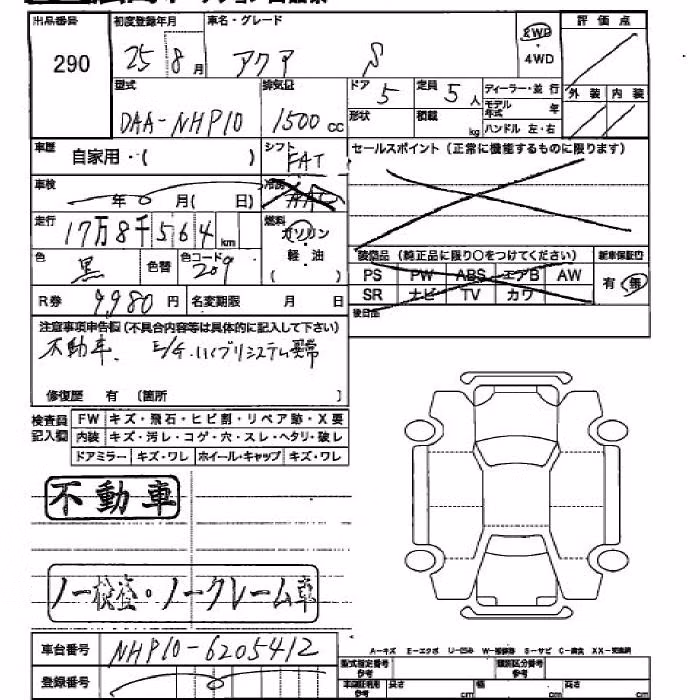 出品番号 初度登録年月 車名・グレード 評価点
290 25 8月 アクア S 2WD ・ 4WD
型式 排気量 ドア 定員 ディーラー・並行 外装 内装
DAA-NHP10 1500cc 5 5人 モデル年式 年
形状 積載 kg ハンドル 左・右
車歴 自家用・( ) シフト FAT セールスポイント(正常に機能するものに限ります)
車検 年 月( 日) 冷房 AAC
走行 17万8千564km 燃料 ガソリン・軽油
装備品(純正品に限り○をつけてください) 新車保証書
色 黒 色替 色コード 209 PS PW ABS エアB AW 有・無
R券 9,980円 名変期限 月 日 SR ナビ TV カワ
後日品
注意事項申告欄(不具合内容等は具体的に記入して下さい)
不動車、 E/G・ハイブリシステム異常
修復歴 有 〔箇所 〕
検査員記入欄 FW キズ・飛石・ヒビ割・リペア跡・X要
内装 キズ・汚レ・コゲ・穴・スレ・ヘタリ・破レ
ドアミラー キズ・ワレ ホイール・キャップ キズ・ワレ
不動車
ノー検査・ノークレーム車
車台番号 NHP10-6205412
A-キズ E-エクボ U-凹み S-サビ C-腐食
登録番号 型式指定番号 参考 類別区分番号 参考
長さ cm 幅 cm 高さ cm